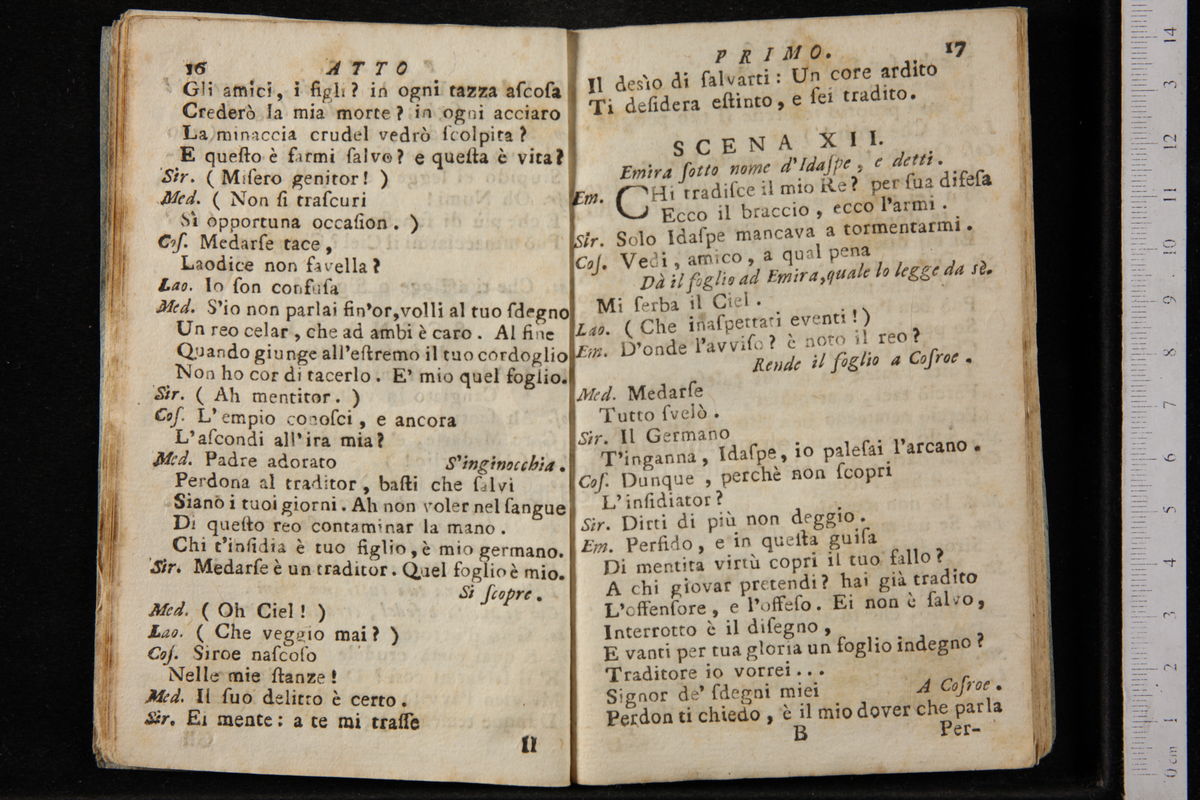 16 ATTO
Gli amici, i figli? in ogni tazza aſcoſa
Crederò la mia morte? in ogni acciaro
La minaccia crudel vedrò ſcolpita?
E queſto è farmi ſalvo? e queſta è vita?
Sir. (Miſero genitor!)
Med. (Non ſi traſcuri
Sì opportuna occaſion.)
Coſ. Medarſe tace,
Laodice non favella?
Lao. Io ſon confuſa
Med. S'io non parlai fin'or, volli al tuo ſdegno
Un reo celar, che ad ambi è caro. Al fine
Quando giunge all'eſtremo il tuo cordoglio
Non ho cor di tacerlo. E' mio quel foglio.
Sir. (Ah mentitor.)
Coſ. L'empio conoſci, e ancora
L'aſcondi all'ira mia?
Med. Padre adorato S'inginocchia.
Perdona al traditor, baſti che ſalvi
Siano i tuoi giorni. Ah non voler nel ſangue
Di queſto reo contaminar la mano.
Chi t'inſidia è tuo figlio, è mio germano.
Sir. Medarſe è un traditor. Quel foglio è mio.
Si ſcopre.
Med. (Oh Ciel!)
Lao. (Che veggio mai?)
Coſ. Siroe naſcoſo
Nelle mie ſtanze!
Med. Il ſuo delitto è certo.
Sir. Ei mente: a te mi traſſe
Il
PRIMO. 17
Il desìo di ſalvarti: Un core ardito
Ti deſidera eſtinto, e ſei tradito.
SCENA XII.
Emira ſotto nome d'Idaſpe, e detti.
Em. CHi tradiſce il mio Re? per ſua difeſa
Ecco il braccio, ecco l'armi.
Sir. Solo Idaſpe mancava a tormentarmi.
Coſ. Vedi, amico, a qual pena
Dà il foglio ad Emira, quale lo legge da sè.
Mi ſerba il Ciel.
Lao. (Che inaſpettati eventi!)
Em. D'onde l'avviſo? è noto il reo?
Rende il foglio a Coſroe.
Med. Medarſe
Tutto ſvelò.
Sir. Il Germano
T'inganna, Idaſpe, io paleſai l'arcano.
Coſ. Dunque, perchè non ſcopri
L'inſidiator?
Sir. Dirti di più non deggio.
Em. Perfido, e in queſta guiſa
Di mentita virtù copri il tuo fallo?
A chi giovar pretendi? hai già tradito
L'offenſore, e l'offeſo. Ei non è ſalvo,
Interrotto è il diſegno,
E vanti per tua gloria un foglio indegno?
Traditore io vorrei...
Signor de' ſdegni miei A Coſroe.
Perdon ti chiedo, è il mio dover che parla
B Per-